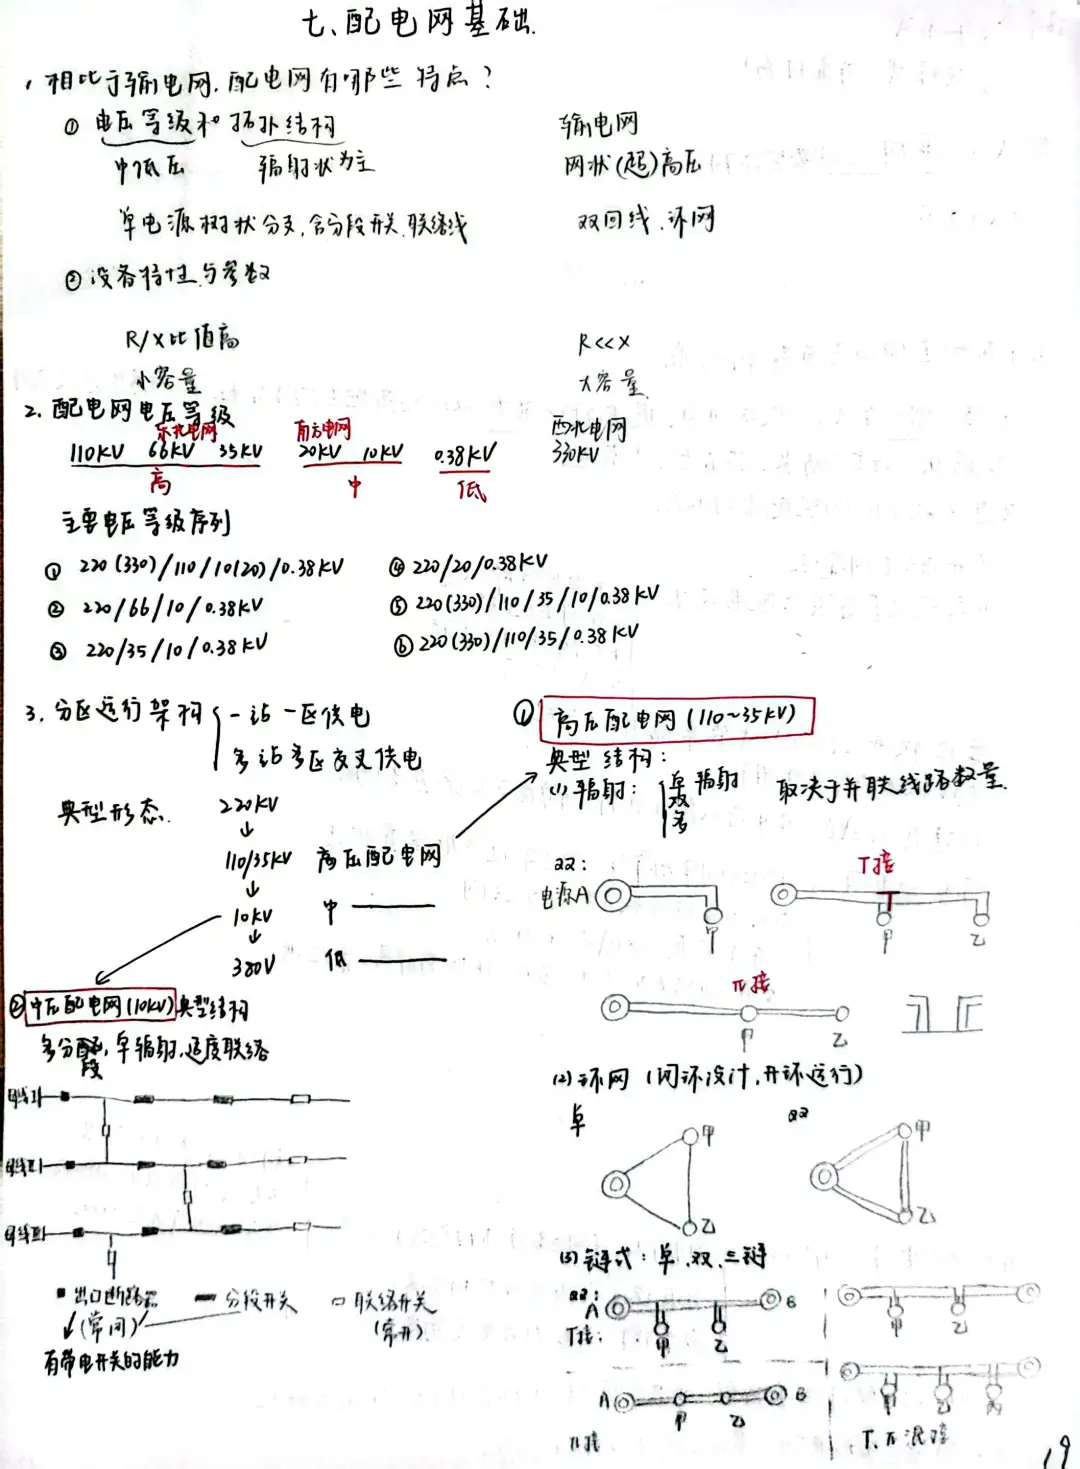 七、配电网基础.
1. 相比于输电网,配电网有哪些特点?
① 电压等级和拓扑结构
输电网
中低压 辐射状为主
网状(超)高压
单电源树状分支,含分段开关、联络线
双回线、环网
② 设备特性与参数
R/X比值高
R<<X
小容量
大容量
2. 配电网电压等级
东北电网 南方电网 西北电网
110KV 66KV 35KV 20KV 10KV 0.38KV 330KV
高 中 低
主要电压等级序列
① 220(330)/110/10(20)/0.38KV
④ 220/20/0.38KV
② 220/66/10/0.38KV
⑤ 220(330)/110/35/10/0.38KV
③ 220/35/10/0.38KV
⑥ 220(330)/110/35/0.38KV
3. 分区运行架构
一站一区供电
多站多区交叉供电
典型形态.
220KV
110/35KV 高压配电网
10KV 中
380V 低
① 高压配电网(110~35KV)
典型结构:
(1) 辐射: 单 双 多 辐射 取决于并联线路数量.
双:
电源A 甲
T接
甲 乙
π接
甲 乙
(2) 环网(闭环设计,开环运行)
单 双
甲 甲
乙 乙
(3) 链式:单、双、三链
双:
A B
T接: 甲 乙
甲 乙
A B
甲 乙
π接
甲 乙 丙
T、π混接
② 中压配电网(10KV)典型结构
多分段,单辐射,适度联络
母线I
母线II
母线III
出口断路器 分段开关 联络开关
(常闭) (常开)
有带电开关的能力
19